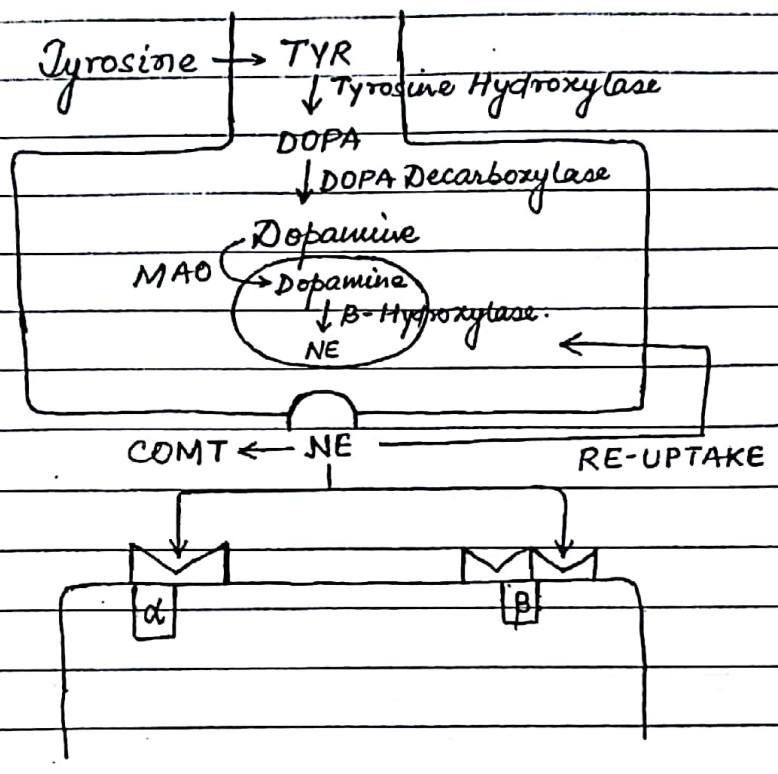 Tyrosine → TYR
↓ Tyrosine Hydroxylase
DOPA
↓ DOPA Decarboxylase
Dopamine
MAO → Dopamine
↓ β-Hydroxylase.
NE
COMT ← NE
RE-UPTAKE
α β